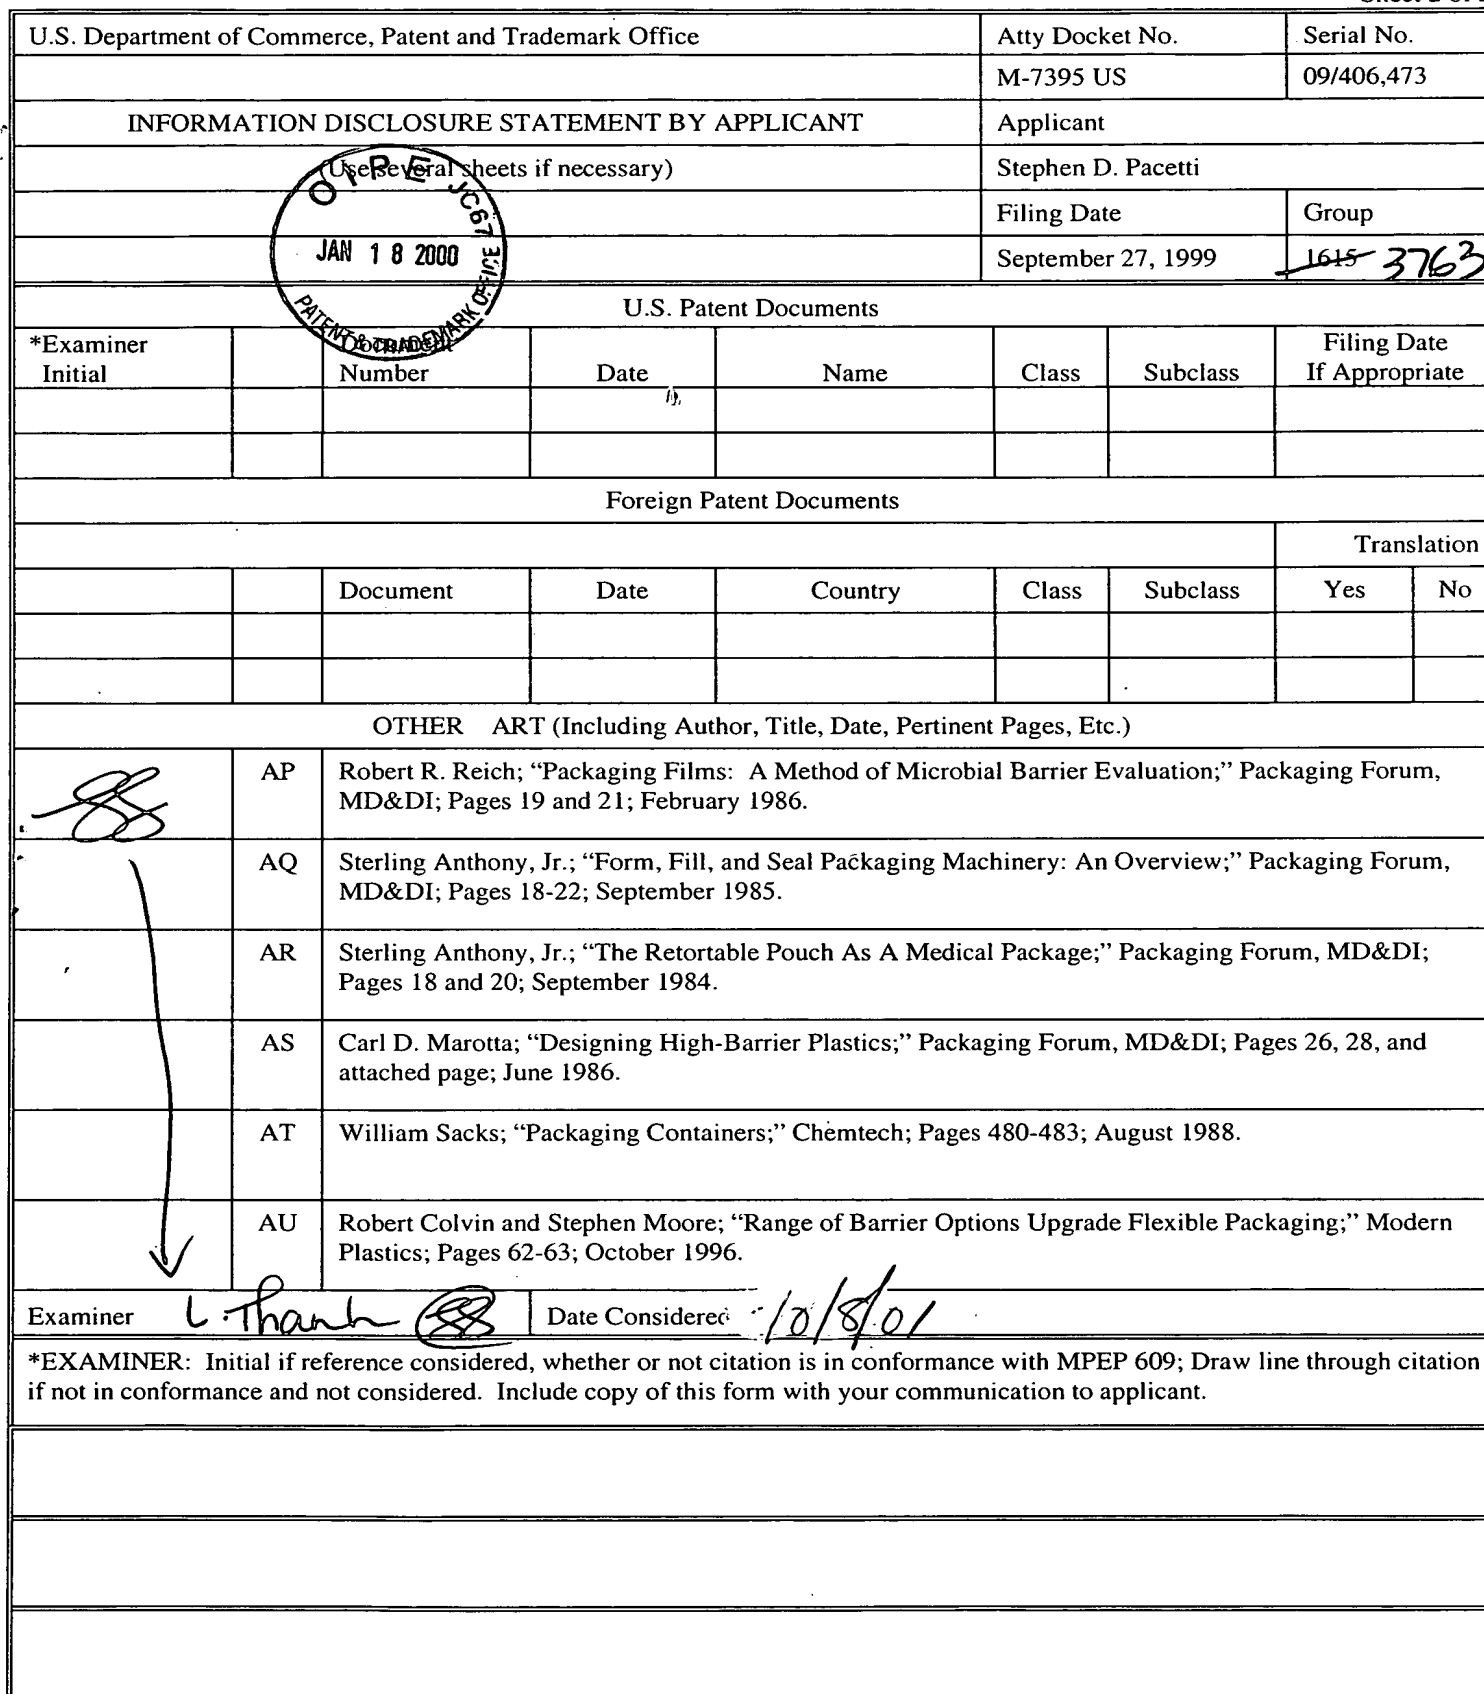 U.S. Department of Commerce, Patent and Trademark Office
Atty Docket No.
Serial No.
M-7395 US
09/406,473
INFORMATION DISCLOSURE STATEMENT BY APPLICANT
Applicant
(Use several sheets if necessary)
Stephen D. Pacetti
Filing Date
Group
September 27, 1999
1615 3763
OIPE JC67
JAN 18 2000
PATENT & TRADEMARK OFFICE
U.S. Patent Documents
*Examiner
Initial
Document
Number
Date
Name
Class
Subclass
Filing Date
If Appropriate
Foreign Patent Documents
Translation
Document
Date
Country
Class
Subclass
Yes
No
OTHER ART (Including Author, Title, Date, Pertinent Pages, Etc.)
AP
Robert R. Reich; “Packaging Films: A Method of Microbial Barrier Evaluation;” Packaging Forum,
MD&DI; Pages 19 and 21; February 1986.
AQ
Sterling Anthony, Jr.; “Form, Fill, and Seal Packaging Machinery: An Overview;” Packaging Forum,
MD&DI; Pages 18-22; September 1985.
AR
Sterling Anthony, Jr.; “The Retortable Pouch As A Medical Package;” Packaging Forum, MD&DI;
Pages 18 and 20; September 1984.
AS
Carl D. Marotta; “Designing High-Barrier Plastics;” Packaging Forum, MD&DI; Pages 26, 28, and
attached page; June 1986.
AT
William Sacks; “Packaging Containers;” Chemtech; Pages 480-483; August 1988.
AU
Robert Colvin and Stephen Moore; “Range of Barrier Options Upgrade Flexible Packaging;” Modern
Plastics; Pages 62-63; October 1996.
Examiner L. Thanh
Date Considered 10/8/01
*EXAMINER: Initial if reference considered, whether or not citation is in conformance with MPEP 609; Draw line through citation
if not in conformance and not considered. Include copy of this form with your communication to applicant.